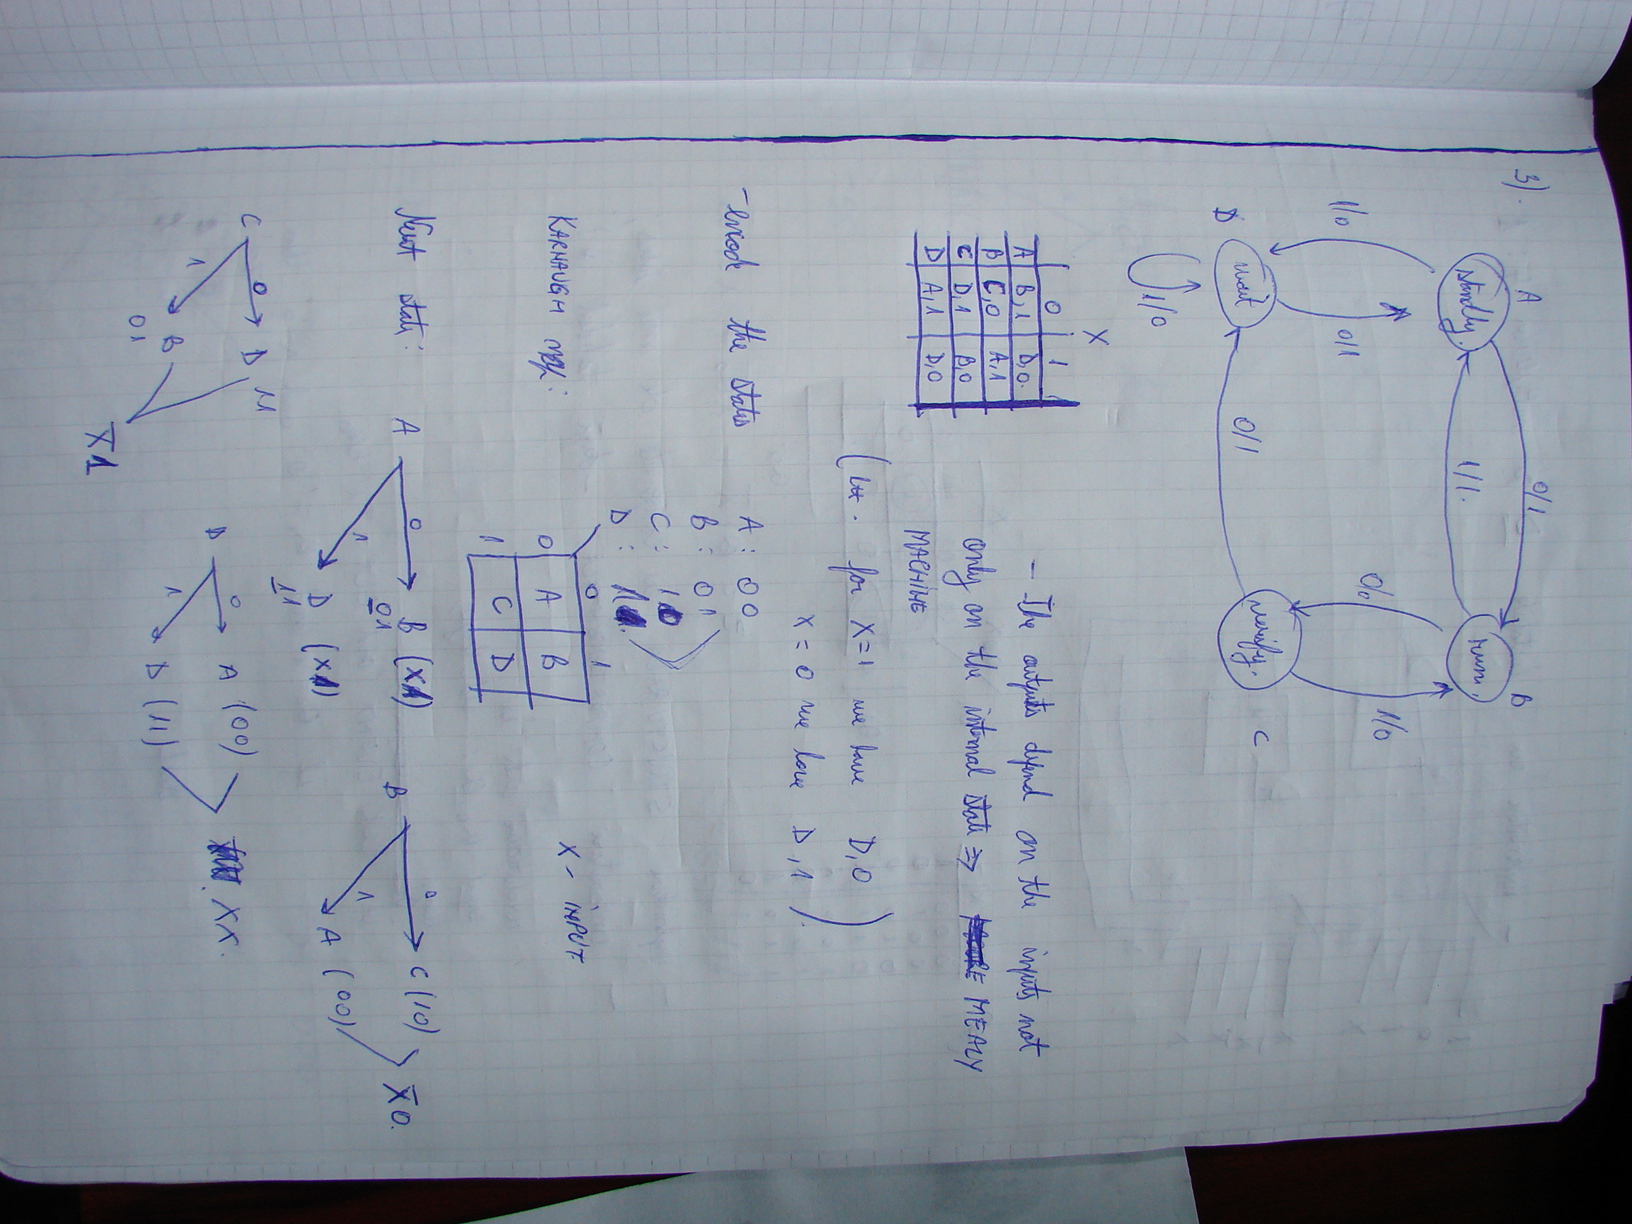 3).
A
standby.
0/1
B
run.
1/1.
1/0
0/1
0/0
1/0
D
wait
0/1
verify.
C
1/0
X
0 1
A B,1 D,0.
B C,0 A,1
C D,1 B,0
D A,1 D,0
- The outputs depend on the inputs not
only on the internal state => MEALY
MACHINE
( for X=1 we have D,0
X=0 we have D,1 ).
- encode the states
A: 00
B: 01
C: 10
D: 11
KARNAUGH map:
0 1
0 A B
1 C D
X - INPUT
Next state:
A
0
B (X1)
01
1
D (X1)
11
B
0
C (10)
1
A (00)
X̅0.
C
0
D 11
1
B
01
X̅1
D
0
A (00)
1
D (11)
XX.